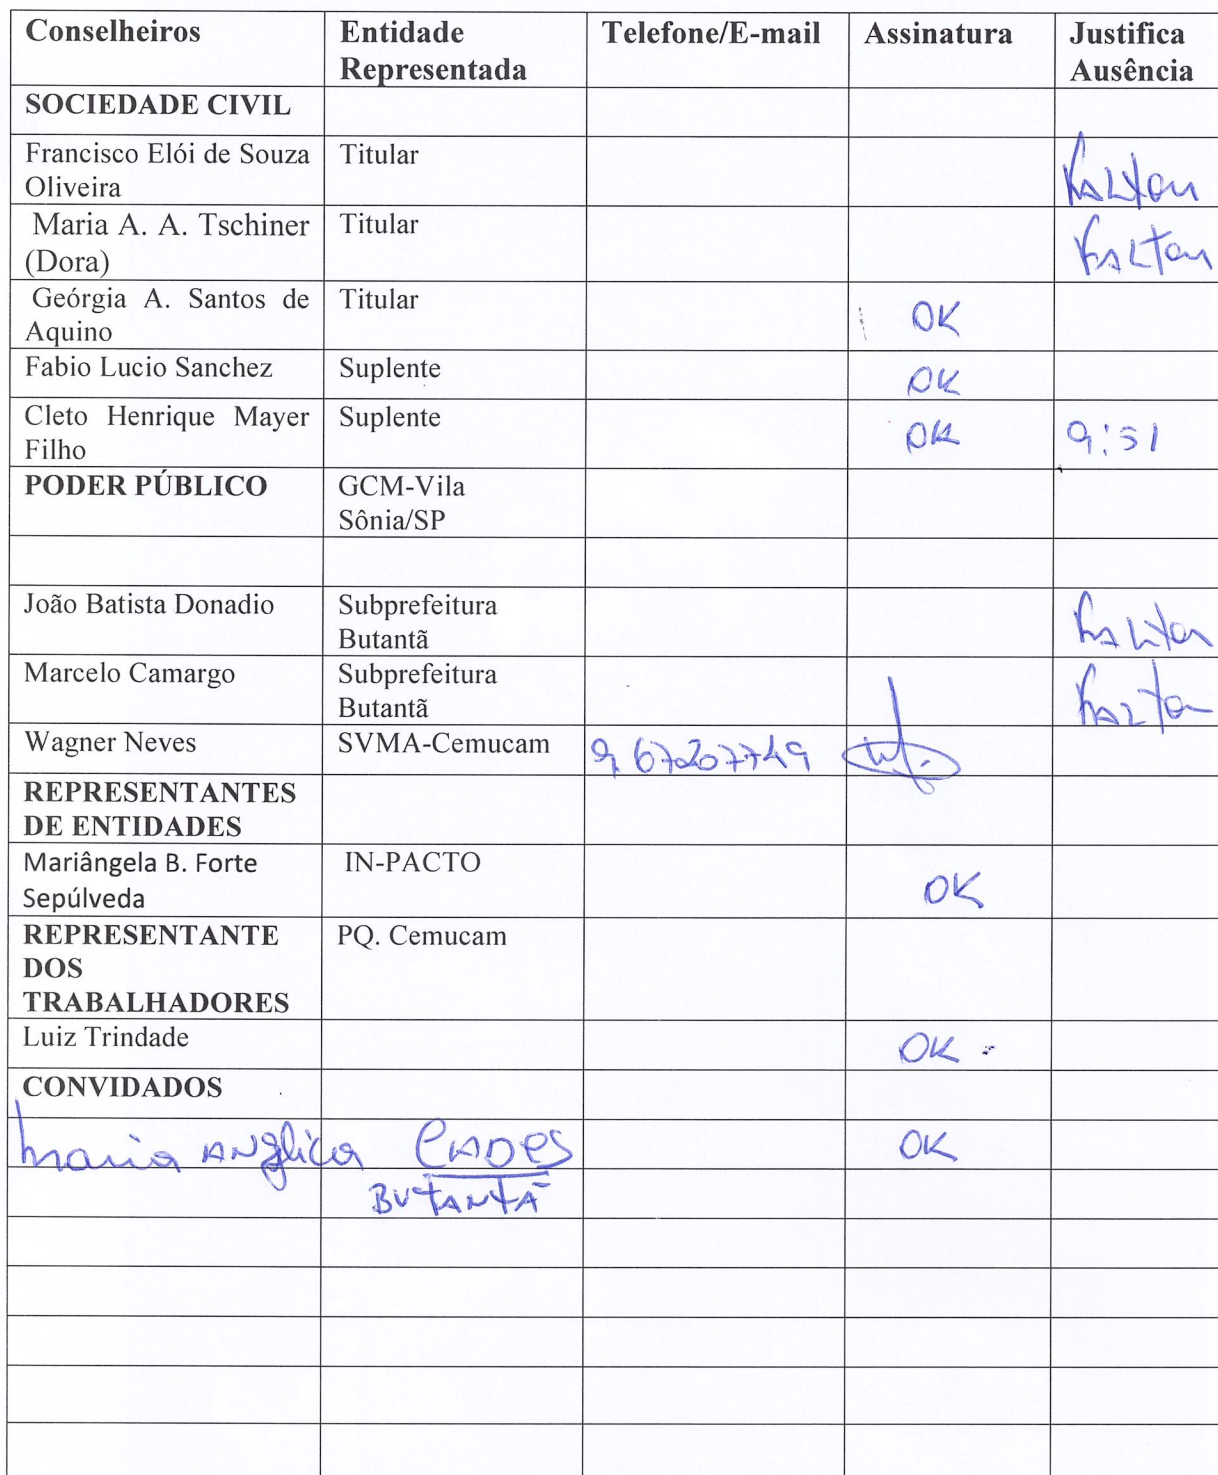 Conselheiros Entidade Telefone/E-mail Assinatura Justifica
Representada Ausência
SOCIEDADE CIVIL
Francisco Elói de Souza Titular
Oliveira Faltou
Maria A. A. Tschiner Titular
(Dora) Faltou
Geórgia A. Santos de Titular
Aquino OK
Fabio Lucio Sanchez Suplente OK
Cleto Henrique Mayer Suplente
Filho OK 9:51
PODER PÚBLICO GCM-Vila
Sônia/SP
João Batista Donadio Subprefeitura
Butantã Faltou
Marcelo Camargo Subprefeitura
Butantã Faltou
Wagner Neves SVMA-Cemucam 9 67207749
REPRESENTANTES
DE ENTIDADES
Mariângela B. Forte IN-PACTO
Sepúlveda OK
REPRESENTANTE PQ. Cemucam
DOS
TRABALHADORES
Luiz Trindade OK
CONVIDADOS
Maria ANgélica CADES OK
BUTANTÃ